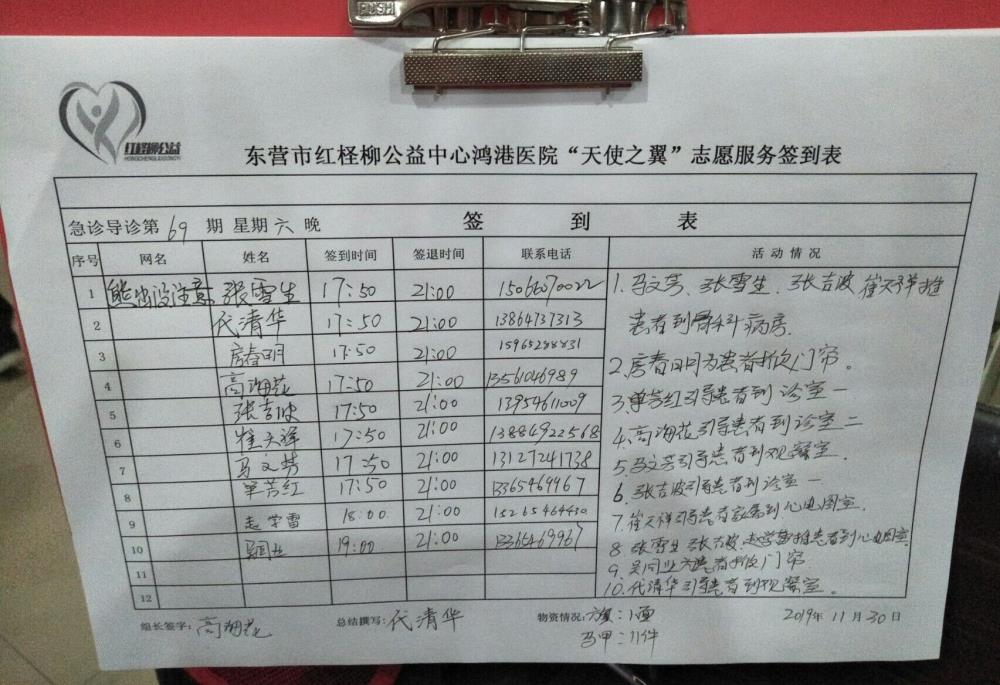 PUSH
红柽柳公益
HONGCHENGLIUGONGYI
东营市红柽柳公益中心鸿港医院“天使之翼”志愿服务签到表
急诊导诊第69期 星期六晚 签到表
序号 网名 姓名 签到时间 签退时间 联系电话 活动情况
1 熊出没注意 张雪生 17:50 21:00 15066070022
2 代清华 17:50 21:00 13864737313
3 房春明 17:50 21:00 15965288831
4 高海花 17:50 21:00 13561046989
5 张吉波 17:50 21:00 13954611009
6 崔天祥 17:50 21:00 13884922568
7 马文芳 17:50 21:00 13127241738
8 单芳红 17:50 21:00 13365469967
9 赵学雷 18:00 21:00
10 19:00 21:00 13365469967
11
12
1.马文芳、张雪生、张吉波 崔天祥推
患者到骨科病房.
2.房春明为患者掀门帘。
3.单芳红引导患者到诊室一
4.高海花引导患者到诊室二
5.马文芳引导患者到观察室.
6.张吉波引导患者到诊室一
7.崔天祥引导患者家属到心电图室.
8 张雪生 张吉波.赵学雷推患者到心电图室.
9.吴同业为患者掀门帘
10.代清华引导患者到观察室.
组长签字:高海花 总结撰写:代清华 物资情况:旗:1面 2019年11月30日
马甲:11件